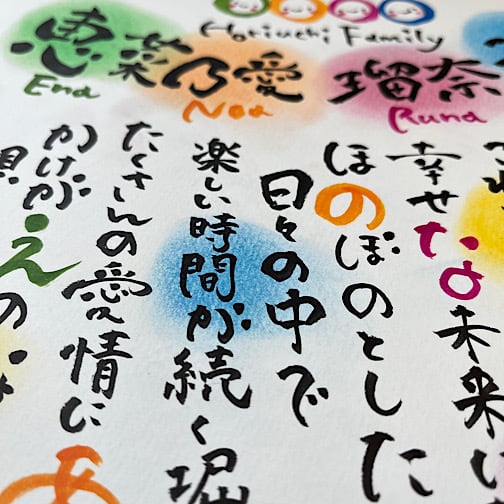 Horiuchi Family
恵菜 乃愛 瑠奈
Ena Noa Runa
幸せな未来
ほのぼのとした
日々の中で
楽しい時間が続く堀
たくさんの愛情に
かけがえのな